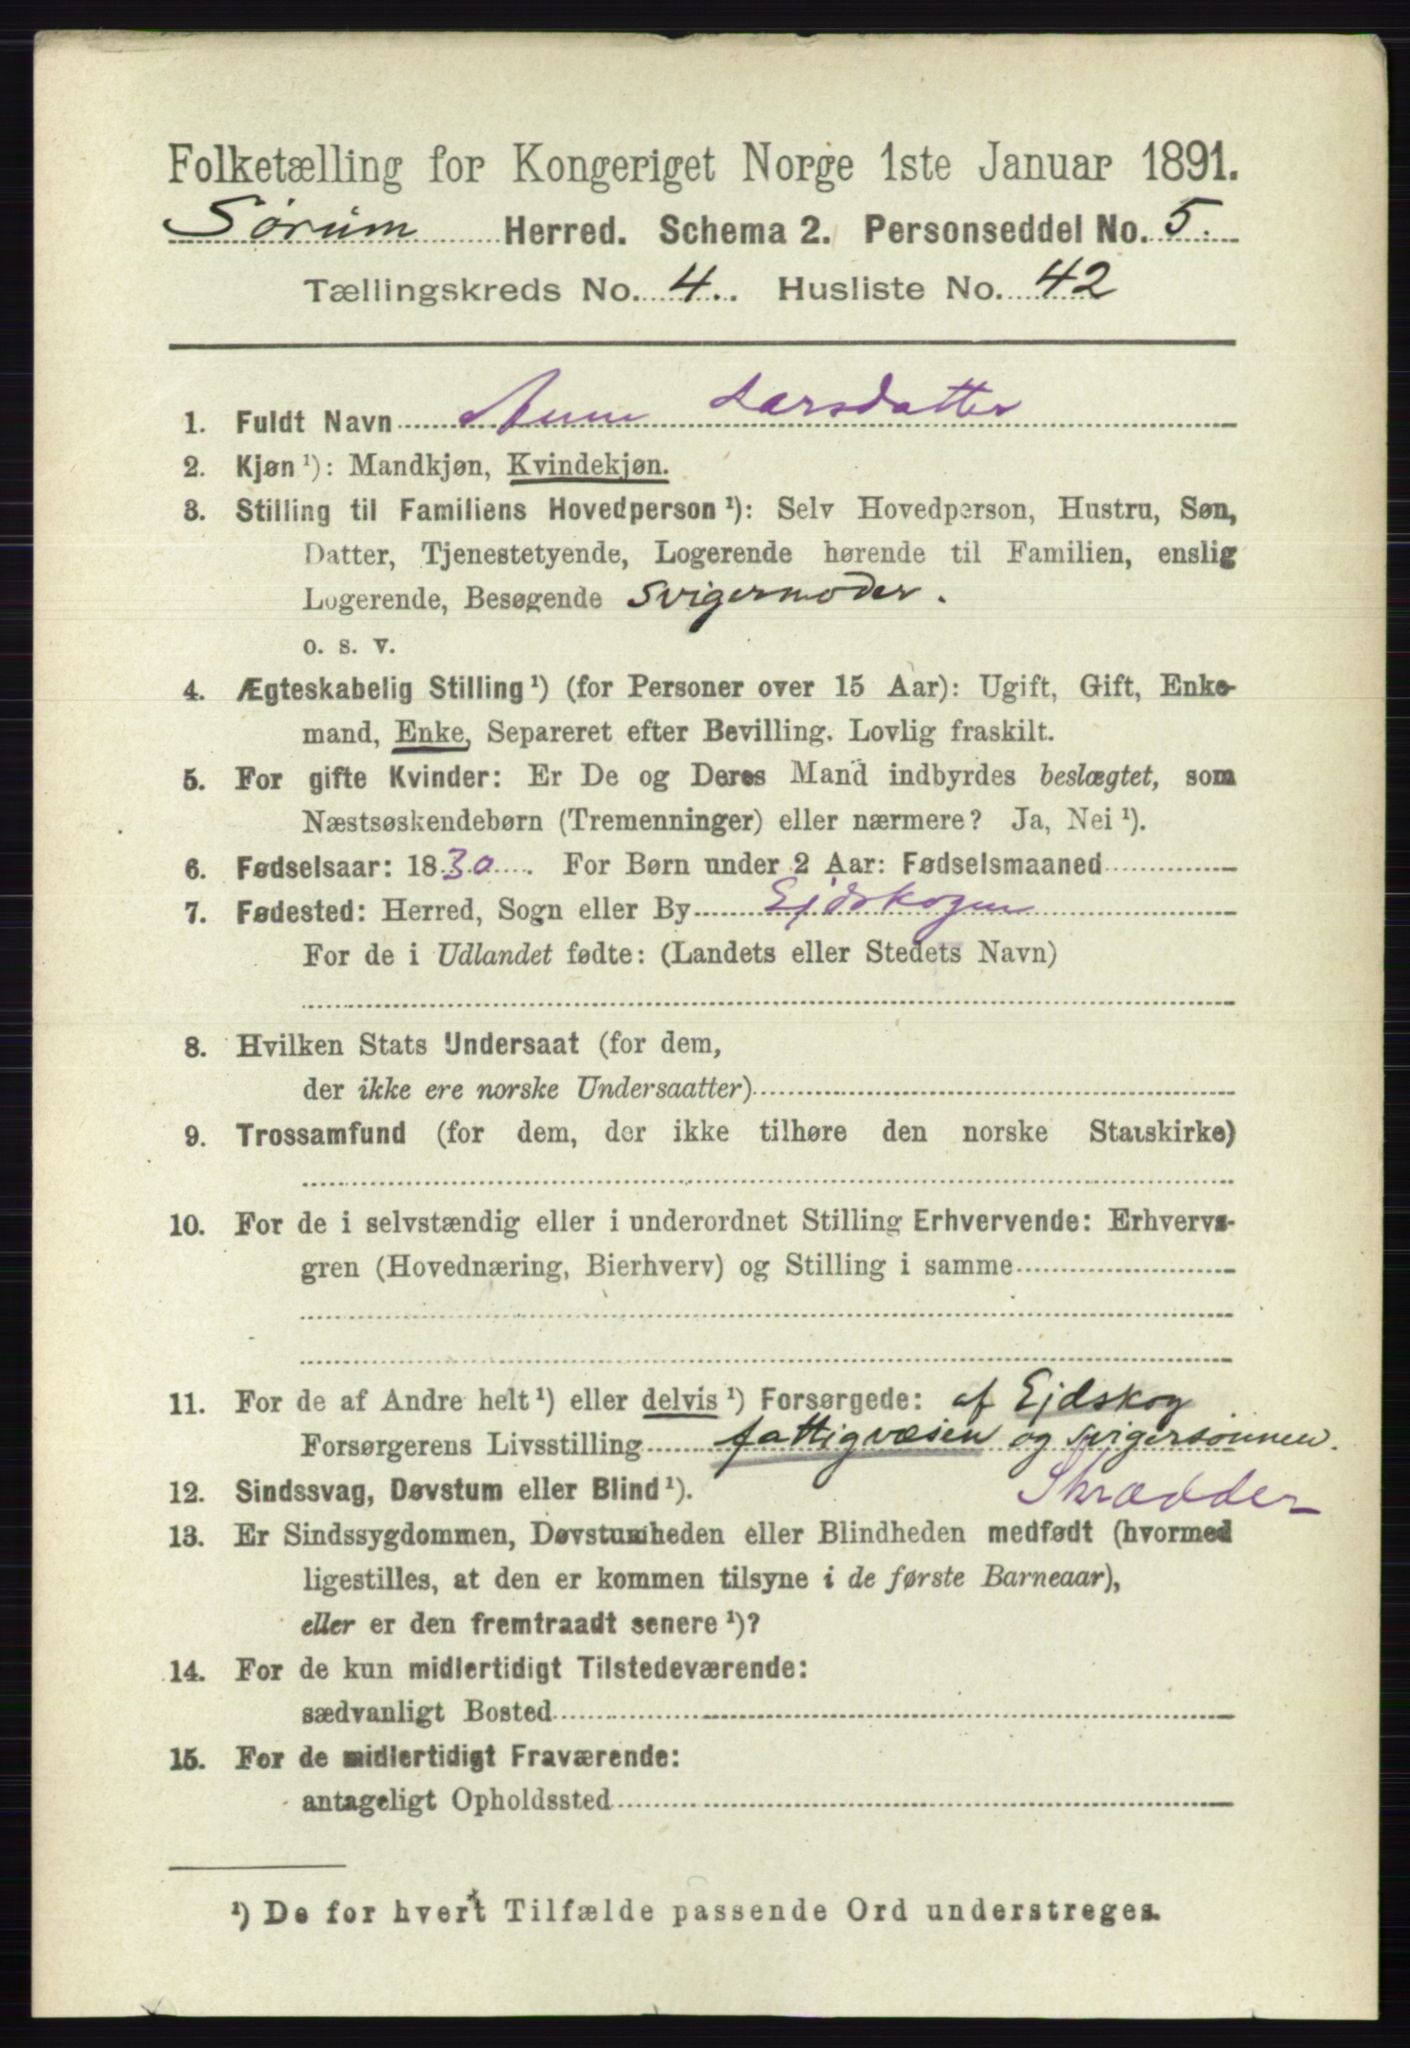 Folketælling for Kongeriget Norge 1ste Januar 1891.
Sørum Herred. Schema 2. Personseddel No. 5.
Tællingskreds No. 4. Husliste No. 42
1. Fuldt Navn Anne Larsdatter
2. Kjøn ¹): Mandkjøn, Kvindekjøn.
3. Stilling til Familiens Hovedperson ¹): Selv Hovedperson, Hustru, Søn,
Datter, Tjenestetyende, Logerende hørende til Familien, enslig
Logerende, Besøgende Svigermoder.
o. s. v.
4. Ægteskabelig Stilling ¹) (for Personer over 15 Aar): Ugift, Gift, Enke-
mand, Enke, Separeret efter Bevilling. Lovlig fraskilt.
5. For gifte Kvinder: Er De og Deres Mand indbyrdes beslægtet, som
Næstsøskendebørn (Tremenninger) eller nærmere? Ja, Nei ¹).
6. Fødselsaar: 1830. For Børn under 2 Aar: Fødselsmaaned
7. Fødested: Herred, Sogn eller By Ejdskogen
For de i Udlandet fødte: (Landets eller Stedets Navn)
8. Hvilken Stats Undersaat (for dem,
der ikke ere norske Undersaatter)
9. Trossamfund (for dem, der ikke tilhøre den norske Statskirke)
10. For de i selvstændig eller i underordnet Stilling Erhvervende: Erhvervs-
gren (Hovednæring, Bierhverv) og Stilling i samme
11. For de af Andre helt ¹) eller delvis ¹) Forsørgede: af Ejdskog
Forsørgerens Livsstilling fattigvæsen og svigersønnen.
Skrædder
12. Sindssvag, Døvstum eller Blind ¹).
13. Er Sindssygdommen, Døvstumheden eller Blindheden medfødt (hvormed
ligestilles, at den er kommen tilsyne i de første Barneaar),
eller er den fremtraadt senere ¹)?
14. For de kun midlertidigt Tilstedeværende:
sædvanligt Bosted
15. For de midlertidigt Fraværende:
antageligt Opholdssted
¹) De for hvert Tilfælde passende Ord understreges.